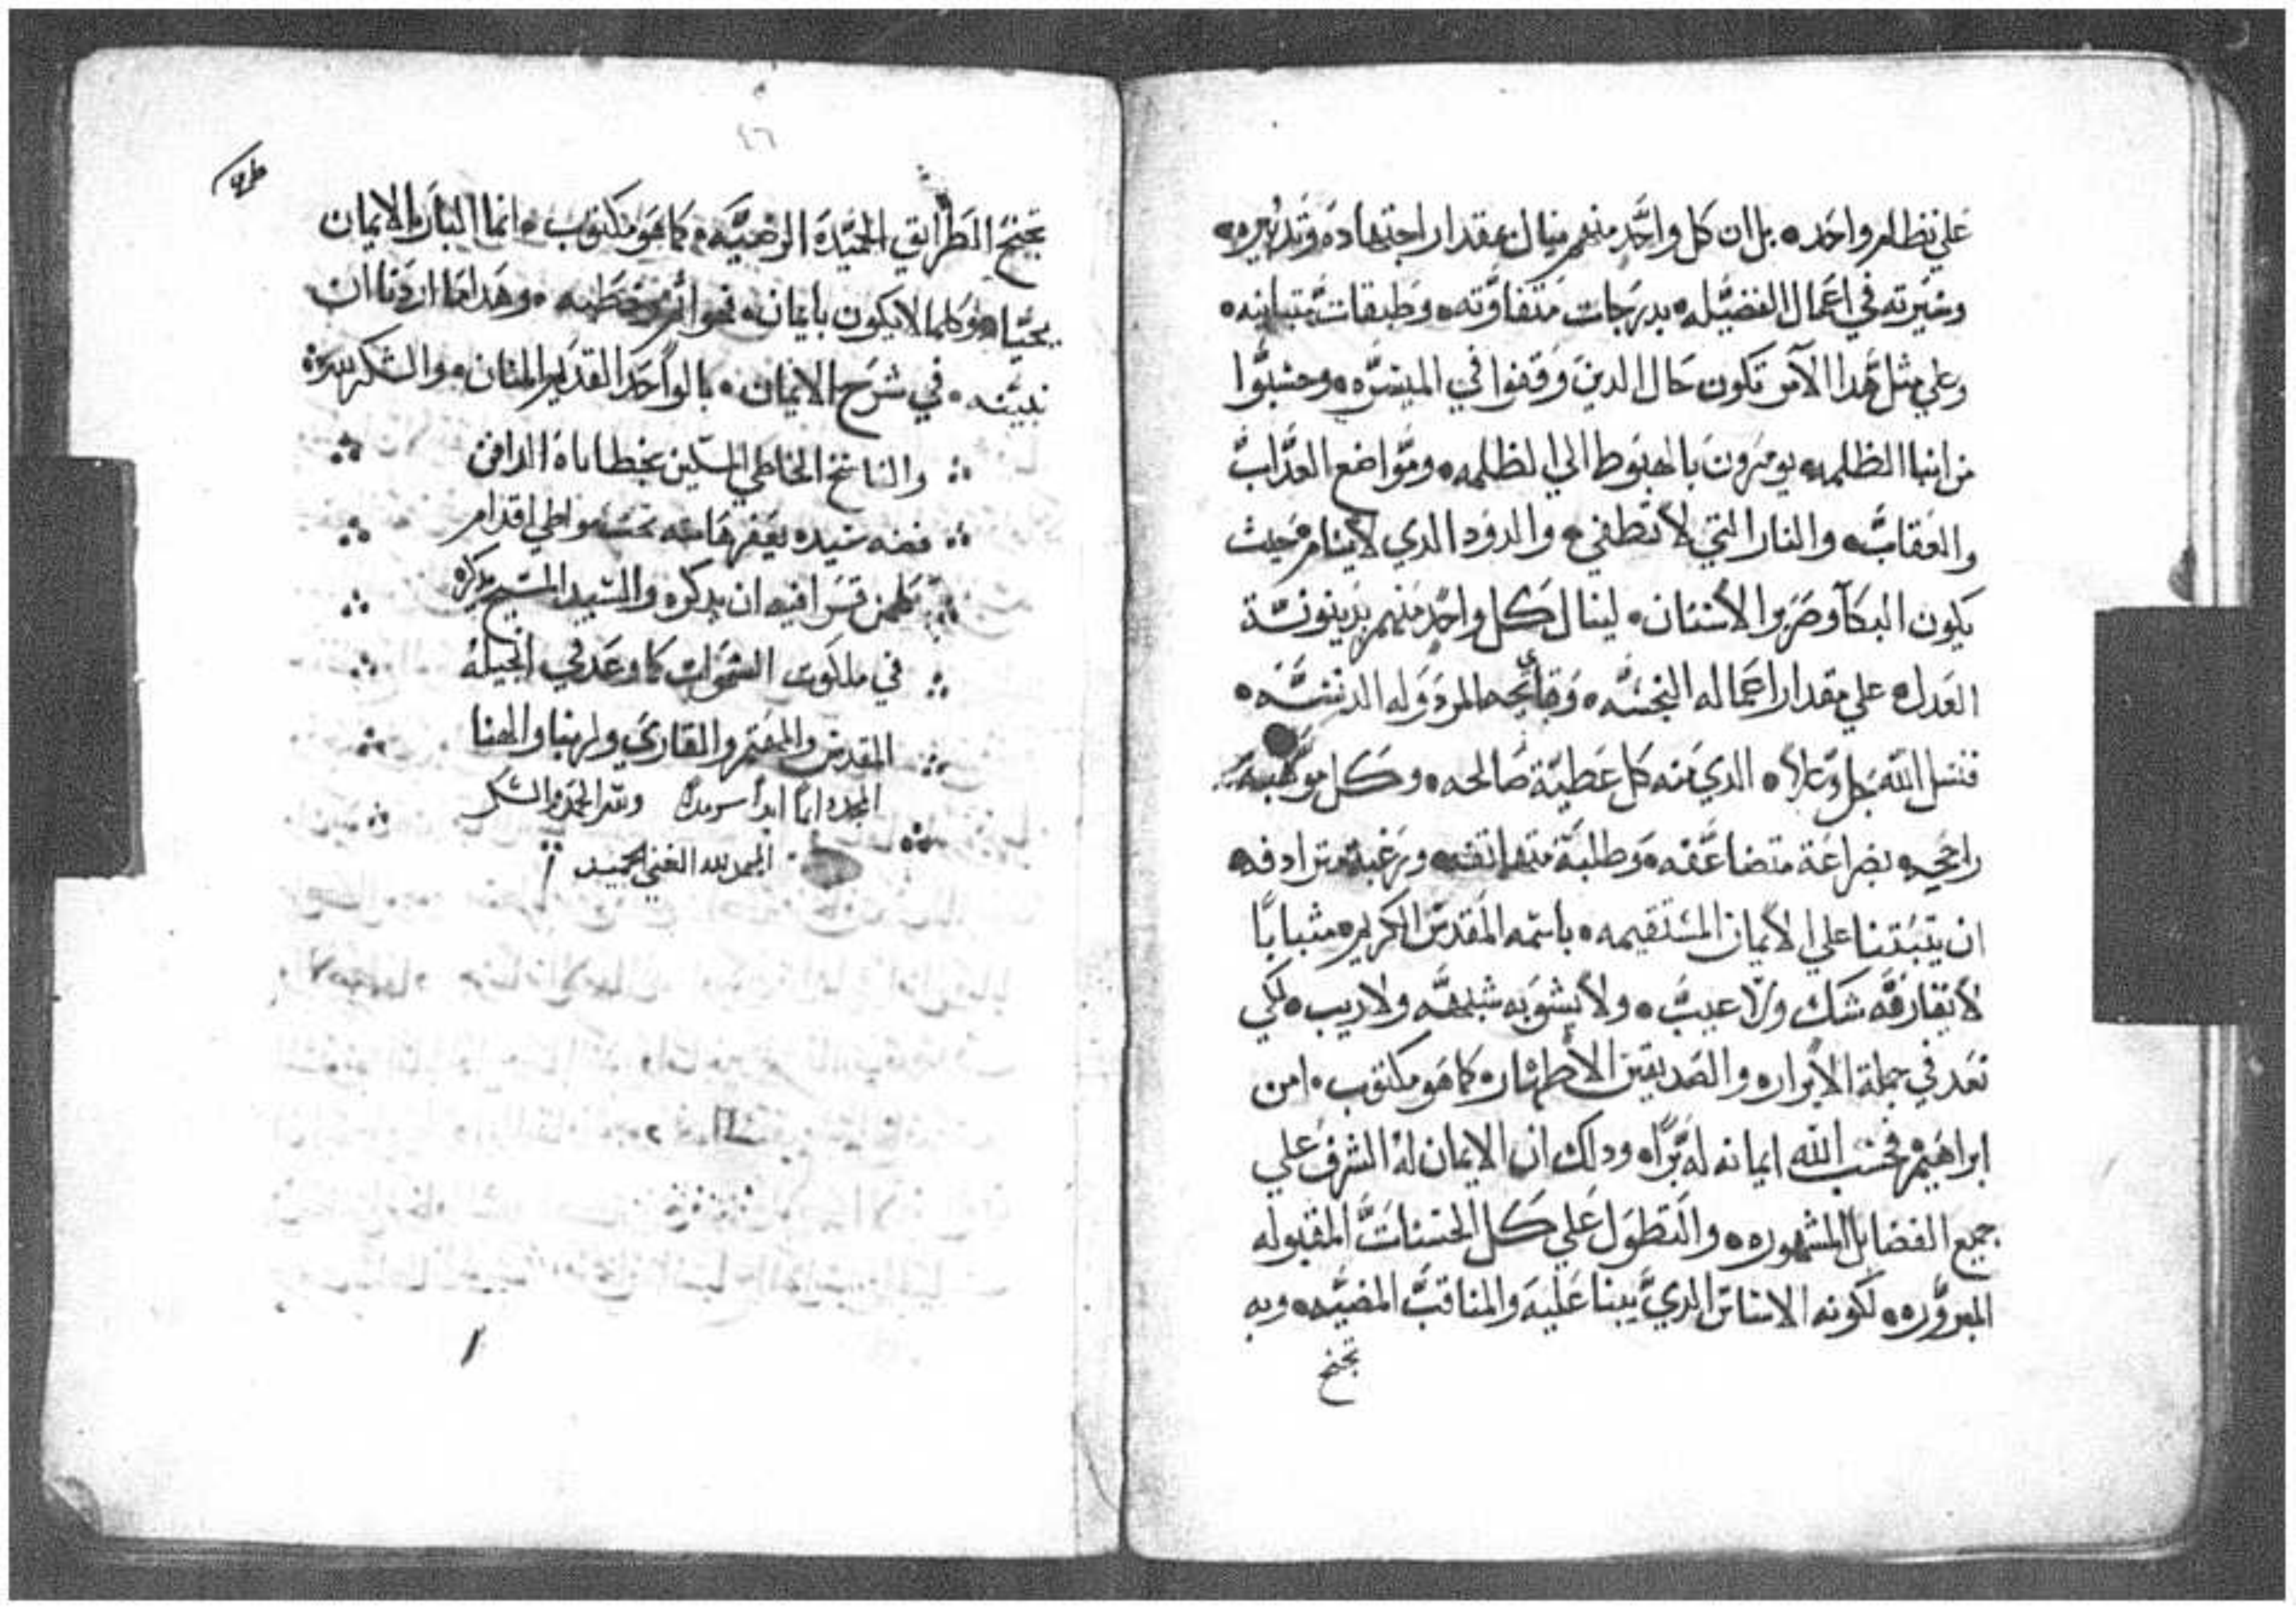 علي نظام واحد ۰ بل ان كل واحد منهم ينال بمقدار اجتهاده وتدبيره ۰
وسيرته في اعمال الفضيله ۰ بدرجات متفاوته ۰ وطبقات متباينه ۰
وعلي مثل هدا الامر تكون حال الدين وقفوا في الميسره ۰ وحسبوا
من ابنا الظلمه يومرون بالهبوط الي الظلمه ۰ ومواضع العداب
والعقاب ۰ والنار التي لا تطفي ۰ والدود الدي لا ينام ۰ حيث
يكون البكا وصرير الاسنان ۰ لينال كل واحد منهم بدينونة
العدل ۰ علي مقدار اعماله النجسه ۰ وقبايحه المردوله الدنسه ۰
فنسل الله جل وعلا ۰ الدي منه كل عطية صالحه ۰ وكل موهبة
راجحه ۰ بضراعة متضاعفه ۰ وطلبة ۰ ورغبة مترادفه
ان يتبتنا علي الايمان المستقيمه ۰ باسمه المقدس الكريم ۰ متباتا
لا يفارقه شك ولا عيب ۰ ولا يشوبه شبهه ولا ريب ۰ لكي
نعد في جملة الابرار ۰ والصديقين الاطهار ۰ كما هو مكتوب ۰ امن
ابراهيم فحسب الله ايمانه له برا ۰ ودلك ان الايمان له الشرف علي
جميع الفضايل المشهوره ۰ والتطول علي كل الحسنات المقبوله
المبروره ۰ لكونه الاساس الدي يبنا عليه والمناقب المضيه ۰ وبه
تنجح
٤٦
تنجح الطرايق الحميدة الرضيه ۰ كما هو مكتوب ۰ انما البار بالايمان
يحيا ۰ وكلما لا يكون بايمان ۰ فهو خطيه ۰ وهدا ما اردنا ان
نبينه ۰ في شرح الايمان ۰ بالواحد القدير المنان ۰ والشكر لله
والناسخ الخاطي المسكين بخطاياه
سيده يعفر هامته تحت مواطي اقدام
كلمن قرا فيه ان يدكره والسيد المسيح يدكره
في ملكوت السموات كما وعد في انجيله
المقدس والمهتم والقاري ولربنا والهنا
المجد دايما ابدا سرمدا ولله الحمد والشكر
الحمد لله الغني الحميد